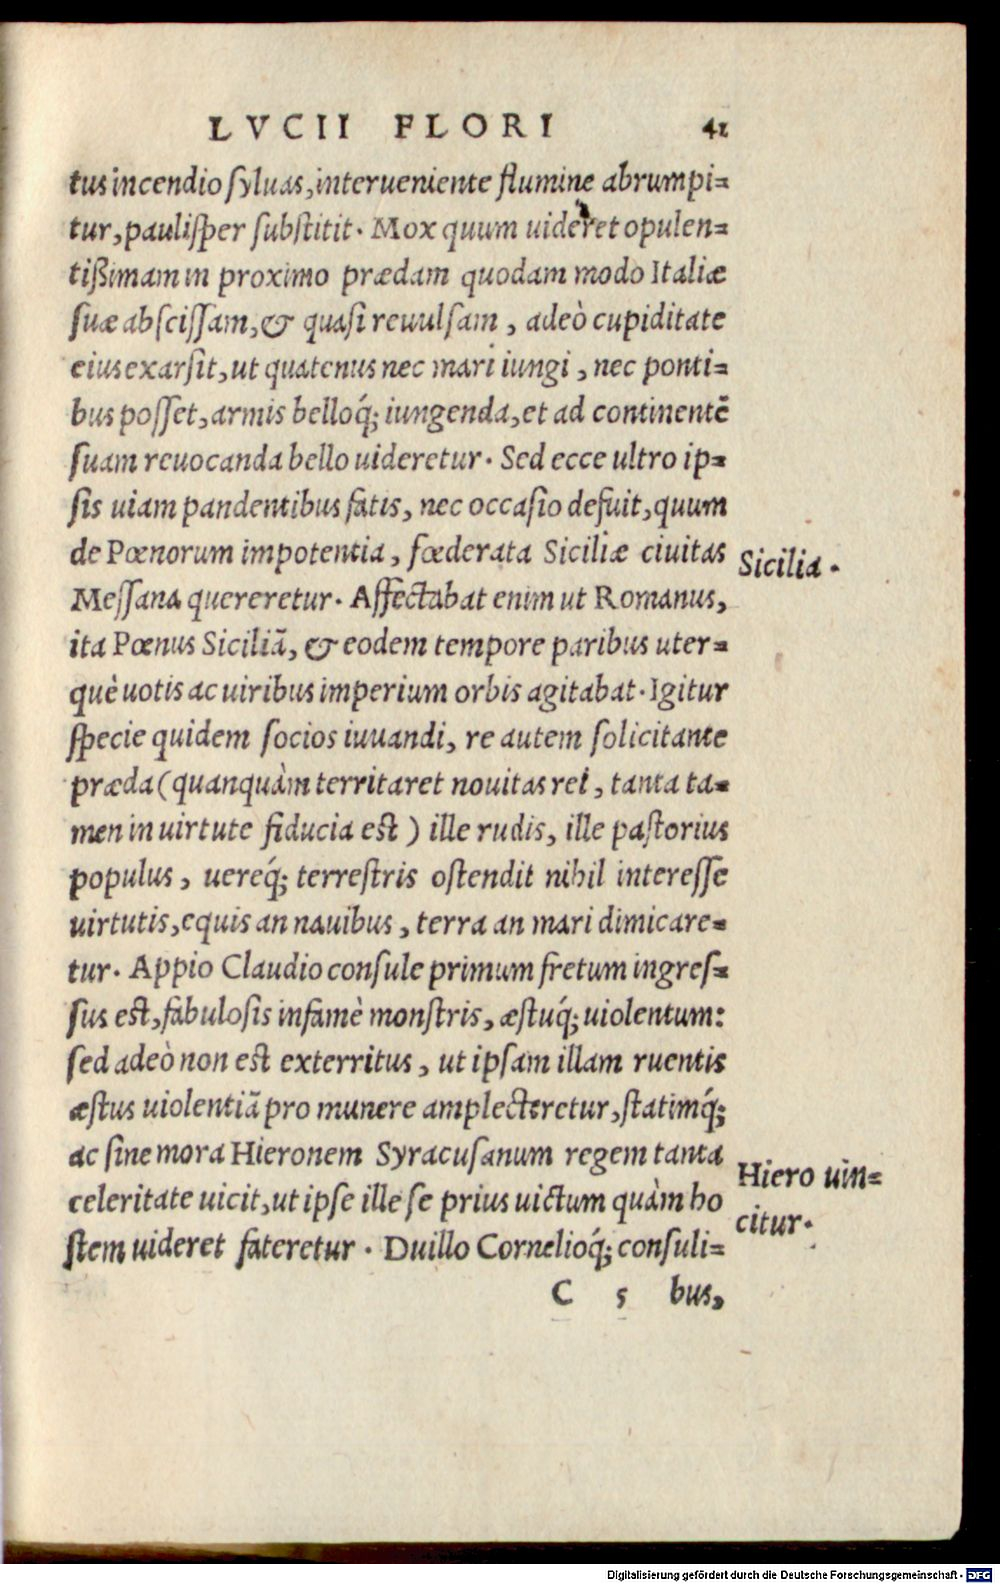 LVCII FLORI 41
tus incendio ſyluas, interueniente flumine abrumpi=
tur, pauliſper ſubſtitit. Mox quum uideret opulen=
tißimam in proximo prædam quodam modo Italiæ
ſuæ abſciſſam, & quaſi reuulſam, adeò cupiditate
eius exarſit, ut quatenus nec mari iungi, nec ponti=
bus poſſet, armis belloq́; iungenda, et ad continentē
ſuam reuocanda bello uideretur. Sed ecce ultro ip=
ſis uiam pandentibus fatis, nec occaſio defuit, quum
de Pœnorum impotentia, fœderata Siciliæ ciuitas
Sicilia.
Meſſana quereretur. Affectabat enim ut Romanus,
ita Pœnus Siciliā, & eodem tempore paribus uter=
què uotis ac uiribus imperium orbis agitabat. Igitur
ſpecie quidem ſocios iuuandi, re autem ſolicitante
præda (quanquàm territaret nouitas rei, tanta ta=
men in uirtute fiducia eſt) ille rudis, ille paſtorius
populus, uereq́; terreſtris oſtendit nihil intereſſe
uirtutis, equis an nauibus, terra an mari dimicare=
tur. Appio Claudio conſule primum fretum ingreſ=
ſus eſt, fabuloſis infamè monſtris, æſtuq́; uiolentum:
ſed adeò non eſt exterritus, ut ipſam illam ruentis
æſtus uiolentiā pro munere amplecteretur, ſtatimq́;
ac ſine mora Hieronem Syracuſanum regem tanta
Hiero uin=
celeritate uicit, ut ipſe ille ſe prius uictum quàm ho
citur.
ſtem uideret fateretur. Duillo Cornelioq́; conſuli=
C 5 bus,
Digitalisierung gefördert durch die Deutsche Forschungsgemeinschaft - DFG